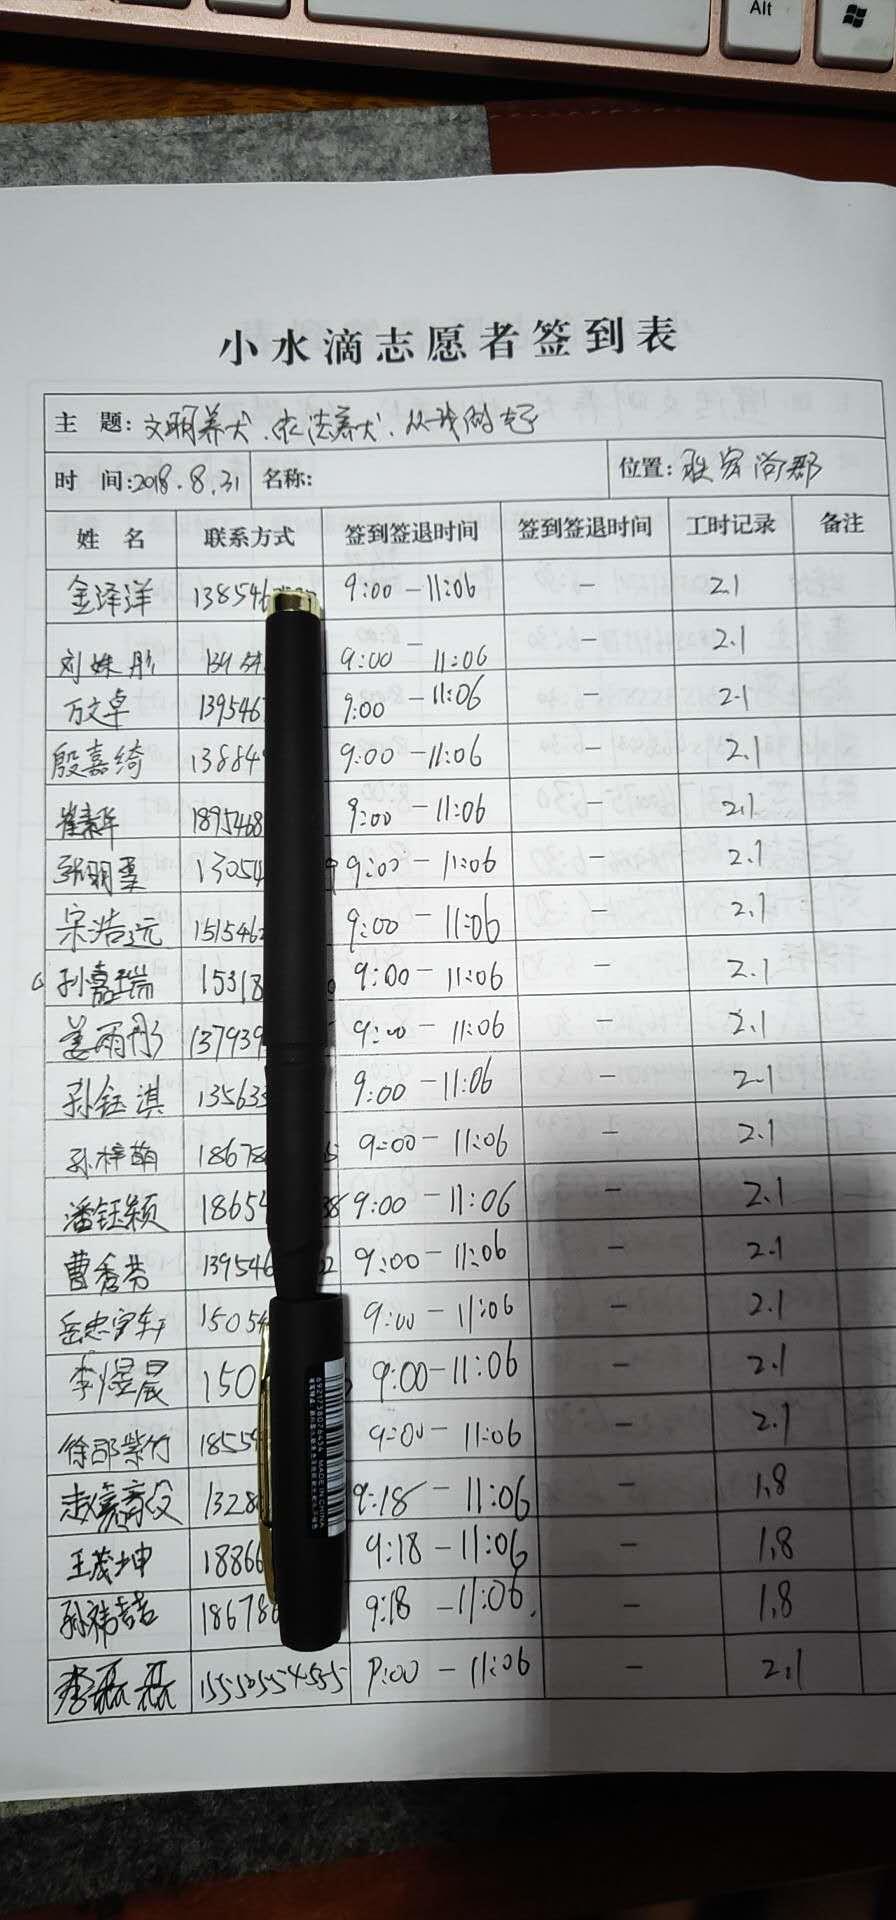 Alt
小水滴志愿者签到表
主 题: 文明养犬、依法养犬、从我做起
时 间:2018.8.31 名称: 位置: 胜宏尚郡
姓 名 联系方式 签到签退时间 签到签退时间 工时记录 备注
金泽洋 138546 9:00-11:06 - 2.1
刘姝彤 139 9:00-11:06 - 2.1
万文卓 139546 9:00-11:06 - 2.1
殷嘉绮 13884 9:00-11:06 - 2.1
1895468 9:00-11:06 - 2.1
13054 9:00-11:06 - 2.1
宋浩远 1515462 9:00-11:06 - 2.1
孙嘉瑞 15318 9:00-11:06 - 2.1
姜雨彤 137939 9:00-11:06 - 2.1
孙钰淇 135633 9:00-11:06 - 2.1
孙梓萌 18678 9:00-11:06 - 2.1
潘钰颖 18654 38 9:00-11:06 - 2.1
曹秀芬 139546 2 9:00-11:06 - 2.1
岳忠宇轩 15054 9:00-11:06 - 2.1
李煜晨 150 9:00-11:06 - 2.1
徐邵紫竹 1855 9:00-11:06 - 2.1
1328 9:18-11:06 - 1.8
王茂坤 18866 9:18-11:06 - 1.8
孙祎喆 18678 9:18-11:06. - 1.8
李磊磊 15550554555 9:00-11:06 - 2.1
MADE IN CHINA